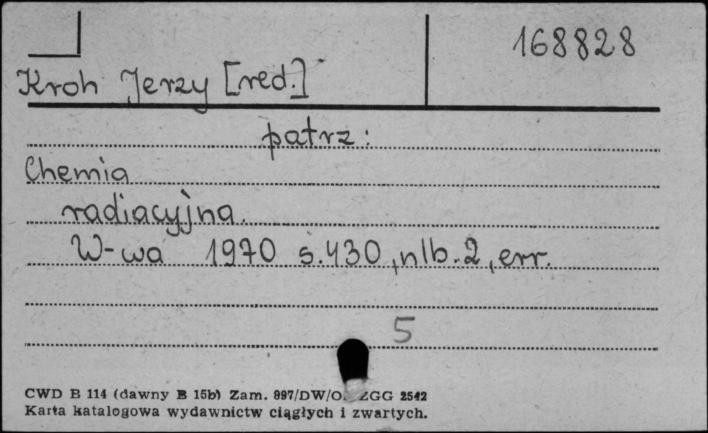 168828
Kroh Jerzy [red.]
patrz:
Chemia
radiacyjna.
W-wa 1970 s.430, nlb.2, err.
5
CWD B 114 (dawny B 15b) Zam. 897/DW/O. ZGG 2542
Karta katalogowa wydawnictw ciągłych i zwartych.